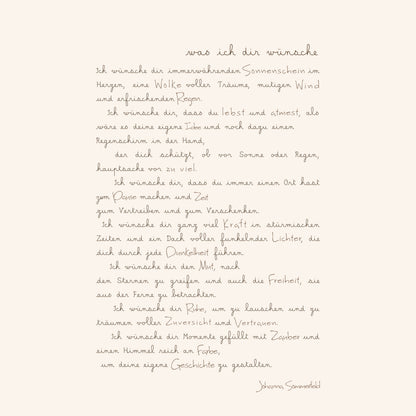 was ich dir wünsche
Ich wünsche dir immerwährenden Sonnenschein im
Herzen, eine Wolke voller Träume, mutigen Wind
und erfrischenden Regen.
Ich wünsche dir, dass du lebst und atmest, als
wäre es deine eigene Idee und noch dazu einen
Regenschirm in der Hand,
der dich schützt, ob vor Sonne oder Regen,
hauptsache vor zu viel.
Ich wünsche dir, dass du immer einen Ort hast
zum Pause machen und Zeit
zum Vertreiben und zum Verschenken.
Ich wünsche dir ganz viel Kraft in stürmischen
Zeiten und ein Dach voller funkelnder Lichter, die
dich durch jede Dunkelheit führen.
Ich wünsche dir den Mut, nach
den Sternen zu greifen und auch die Freiheit, sie
aus der Ferne zu betrachten.
Ich wünsche dir Ruhe, um zu lauschen und zu
träumen voller Zuversicht und Vertrauen.
Ich wünsche dir Momente gefüllt mit Zauber und
einen Himmel reich an Farbe,
um deine eigene Geschichte zu gestalten.
Johanna Sommerfeld